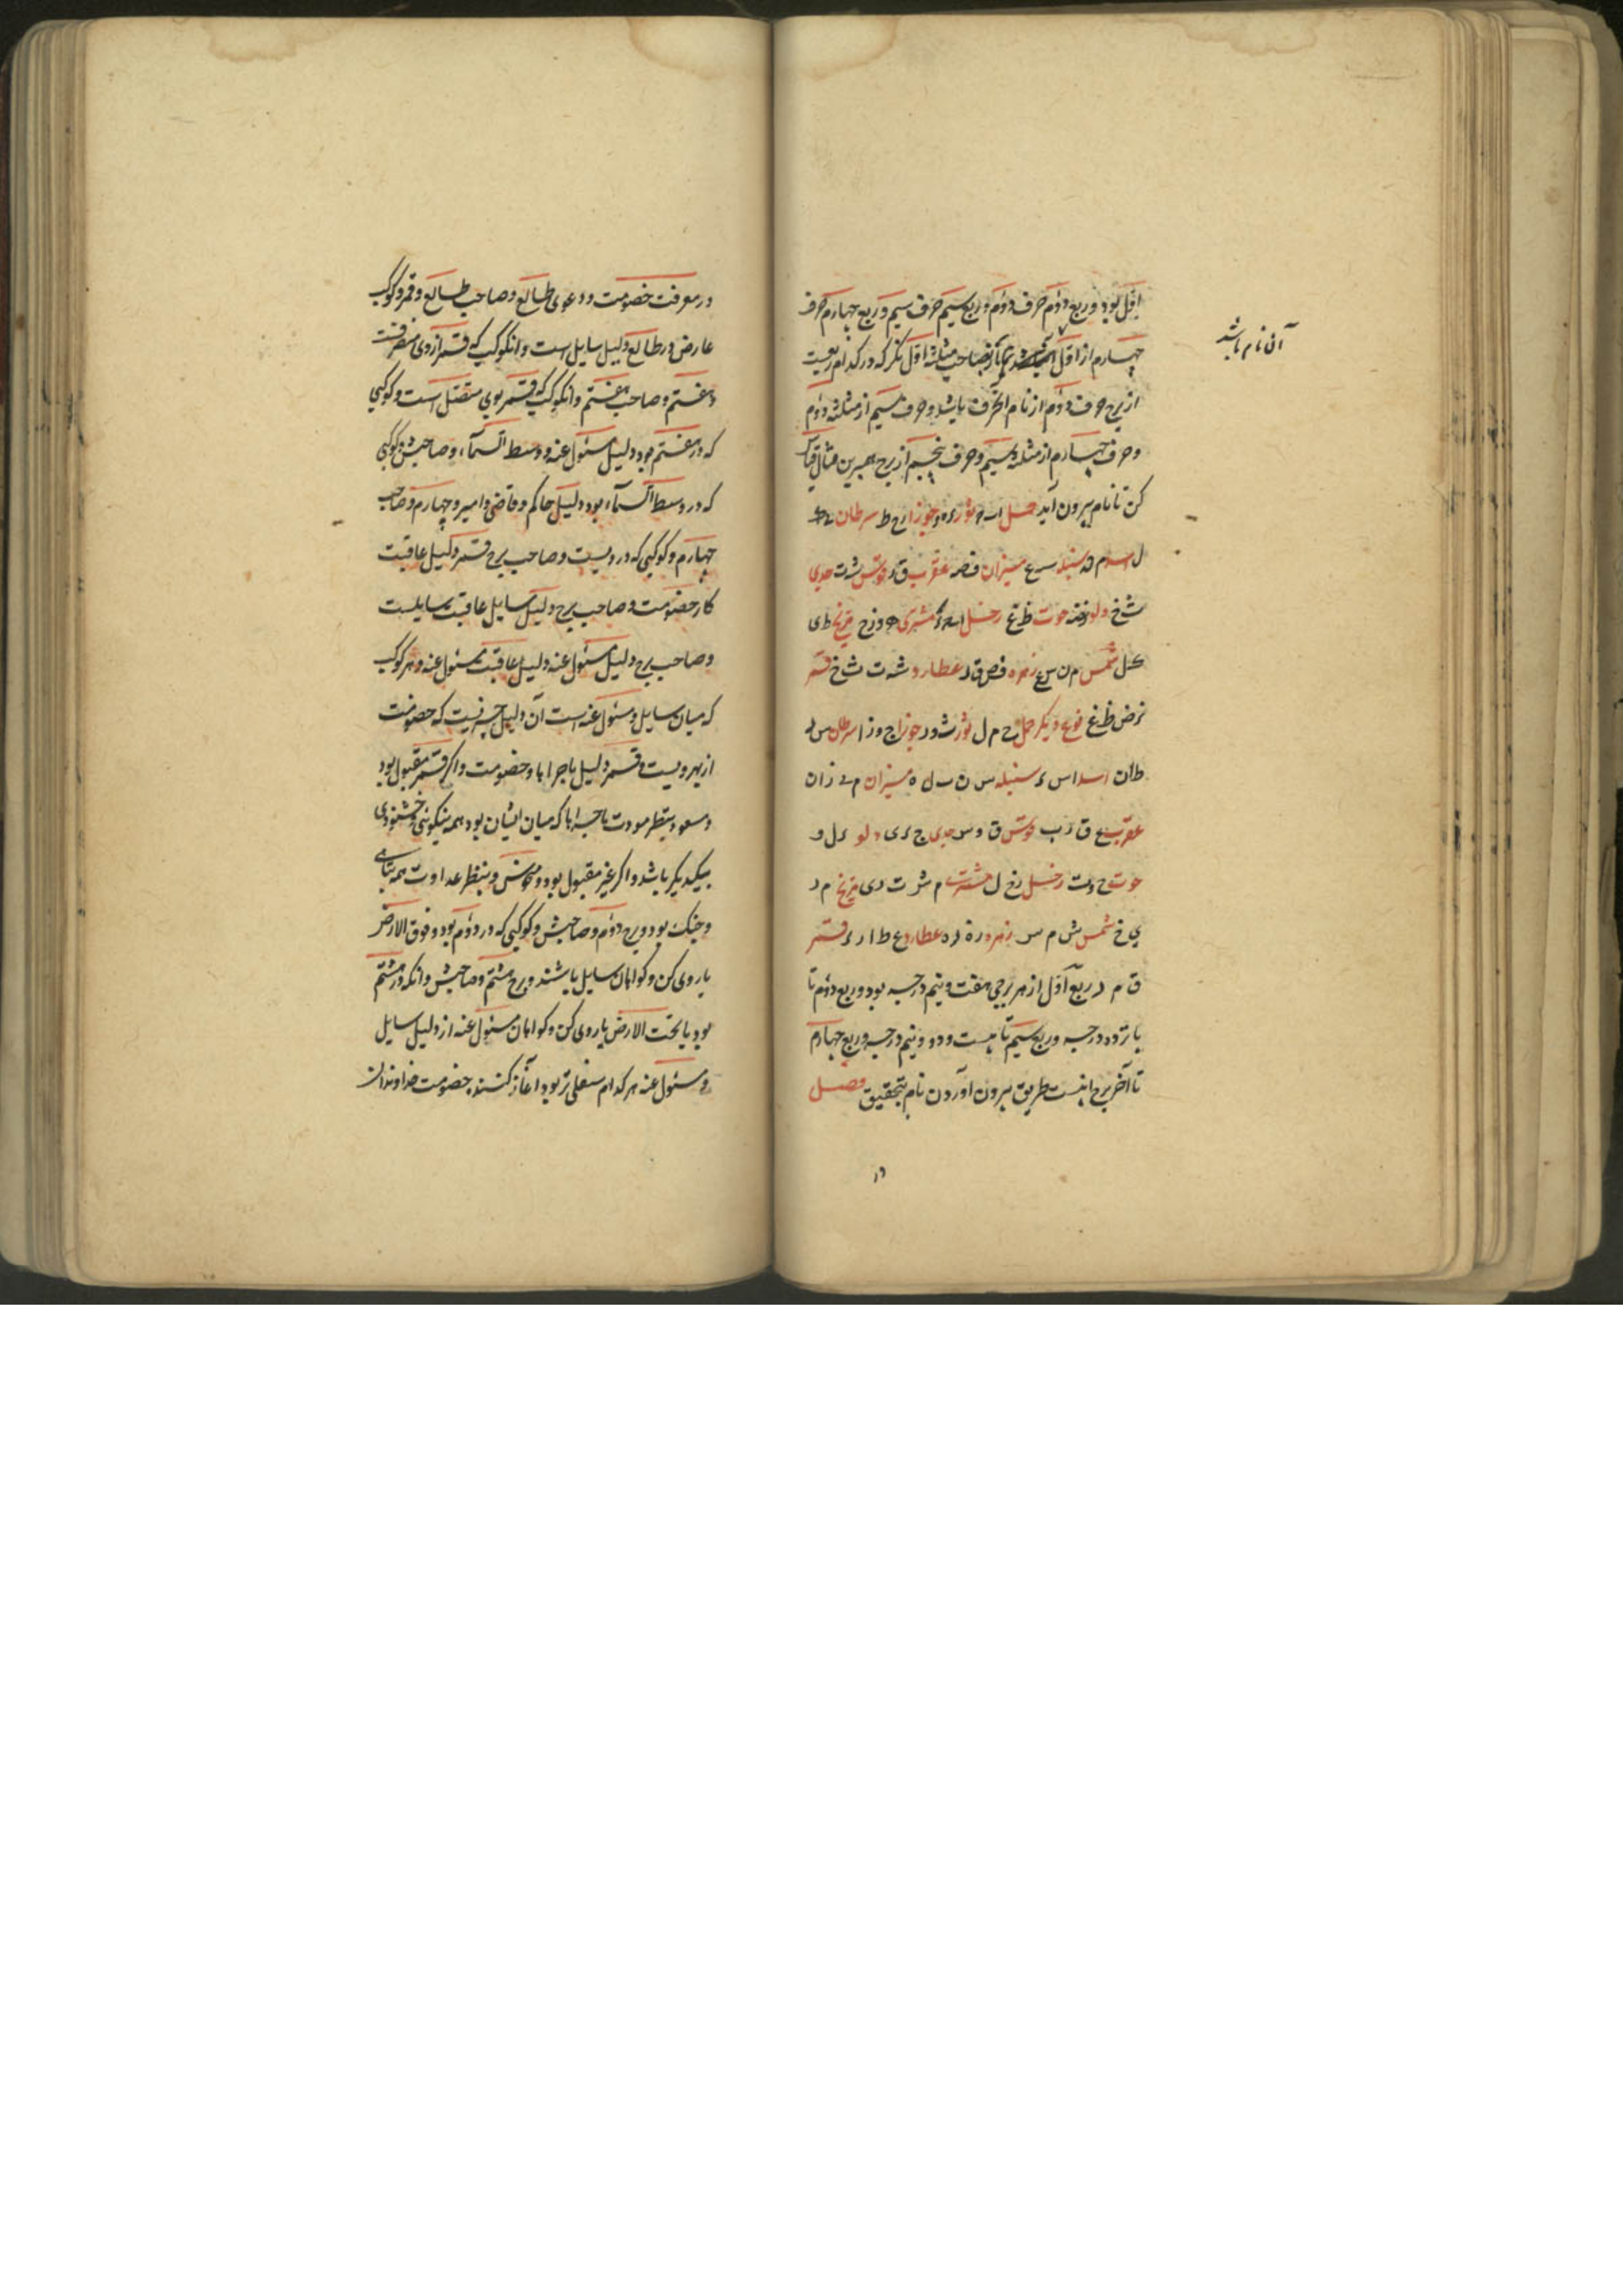 اوّل بود و ربع دوّم حرف دوّم و ربع سیم حرف سیم و ربع چهارم حرف
چهارم از اوّل صاحب مثلثه اوّل نکر که در کدام ربعست
از برج حرف دوّم از نام انحرف باشد و حرف سیم از مثلثه دوّم
و حرف چهارم از مثلثه سیم و حرف پنجم از برج همبرین مثال قیاس
کن تا نام بیرون آید حمل اب ثور جوزا ح ط سرطان
ل اسد م سنبله س ع میزان عقرب ق ر قوس ش ت جدی
ث خ دلو حوت ظ غ زحل مشتری ه و ز ح مریخ ط ی
ک ل شمس م ن س ع زهره ف ص ق ر عطارد ش ت ث خ قمر
ذ ض ظ غ نوع دیکر حمل ح م ل ثور ث و ر جوزا ج و ز ا سرطان س ر
ط ان اسد ا س د سنبله س ن ب ل ه میزان م ی ز ان
عقرب ع ق ر ب قوس ق و س جدی ج د ی دلو د ل و
حوت ح و ت زحل ز ح ل مشتری م ش ت ر ی مریخ م ر
ی خ شمس ش م س زهره ز ه ر ه عطارد ع ط ا ر د قمر
ق م ر ربع اوّل از هر برجی هفت و نیم درجه بود و ربع دوّم تا
پانزده درجه و ربع سیم تا بیست و دو و نیم درجه و ربع چهارم
تا آخر برج اینست طریق بیرون آوردن نام بتحقیق فصل
آن نام باشد
در
در معرفت خصومت و دعوی طالع و صاحب طالع و قمر و کوکب
عارض در طالع دلیل سایل است و انکوکب که قمر از وی منصرفست
و هفتم و صاحب هفتم و انکوکب که قمر بوی متصل است و کوکبی
که در هفتم بود دلیل مسئول عنه و وسط السّماء و صاحبش و کوکبی
که در وسط السّماء بود دلیل حاکم و قاضی و امیر و چهارم و صاحب
چهارم و کوکبی که در ویست و صاحب برج قمر دلیل عاقبت
کار خصومت و صاحب برج دلیل سایل عاقبت سایلست
و صاحب برج دلیل مسئول عنه دلیل عاقبت مسئول عنه و هر کوکب
که میان سایل و مسئول عنه است آن دلیل چیزیست که خصومت
از بهر ویست و قمر دلیل ماجراها و خصومت و اکر قمر مقبول بود
و مسعود بنظر مودت ماجراها که میان ایشان بود همه بنیکوئی و خشنودی
بیکدیکر باشد و اکر غیر مقبول بود و منحوس و بنظر عداوت همه
و جنک بود و برج دوّم و صاحبش و کوکبی که در دوّم بود و فوق الارض
یاروی کن و کواهان سایل باشند و برج هشتم و صاحبش و انکه در هشتم
بود یا تحت الارض یاروی کن و کواهان مسئول عنه از دلیل سایل
و مسئول عنه هر کدام سفلی تر بود آغاز کننده خصومت خداوند آن